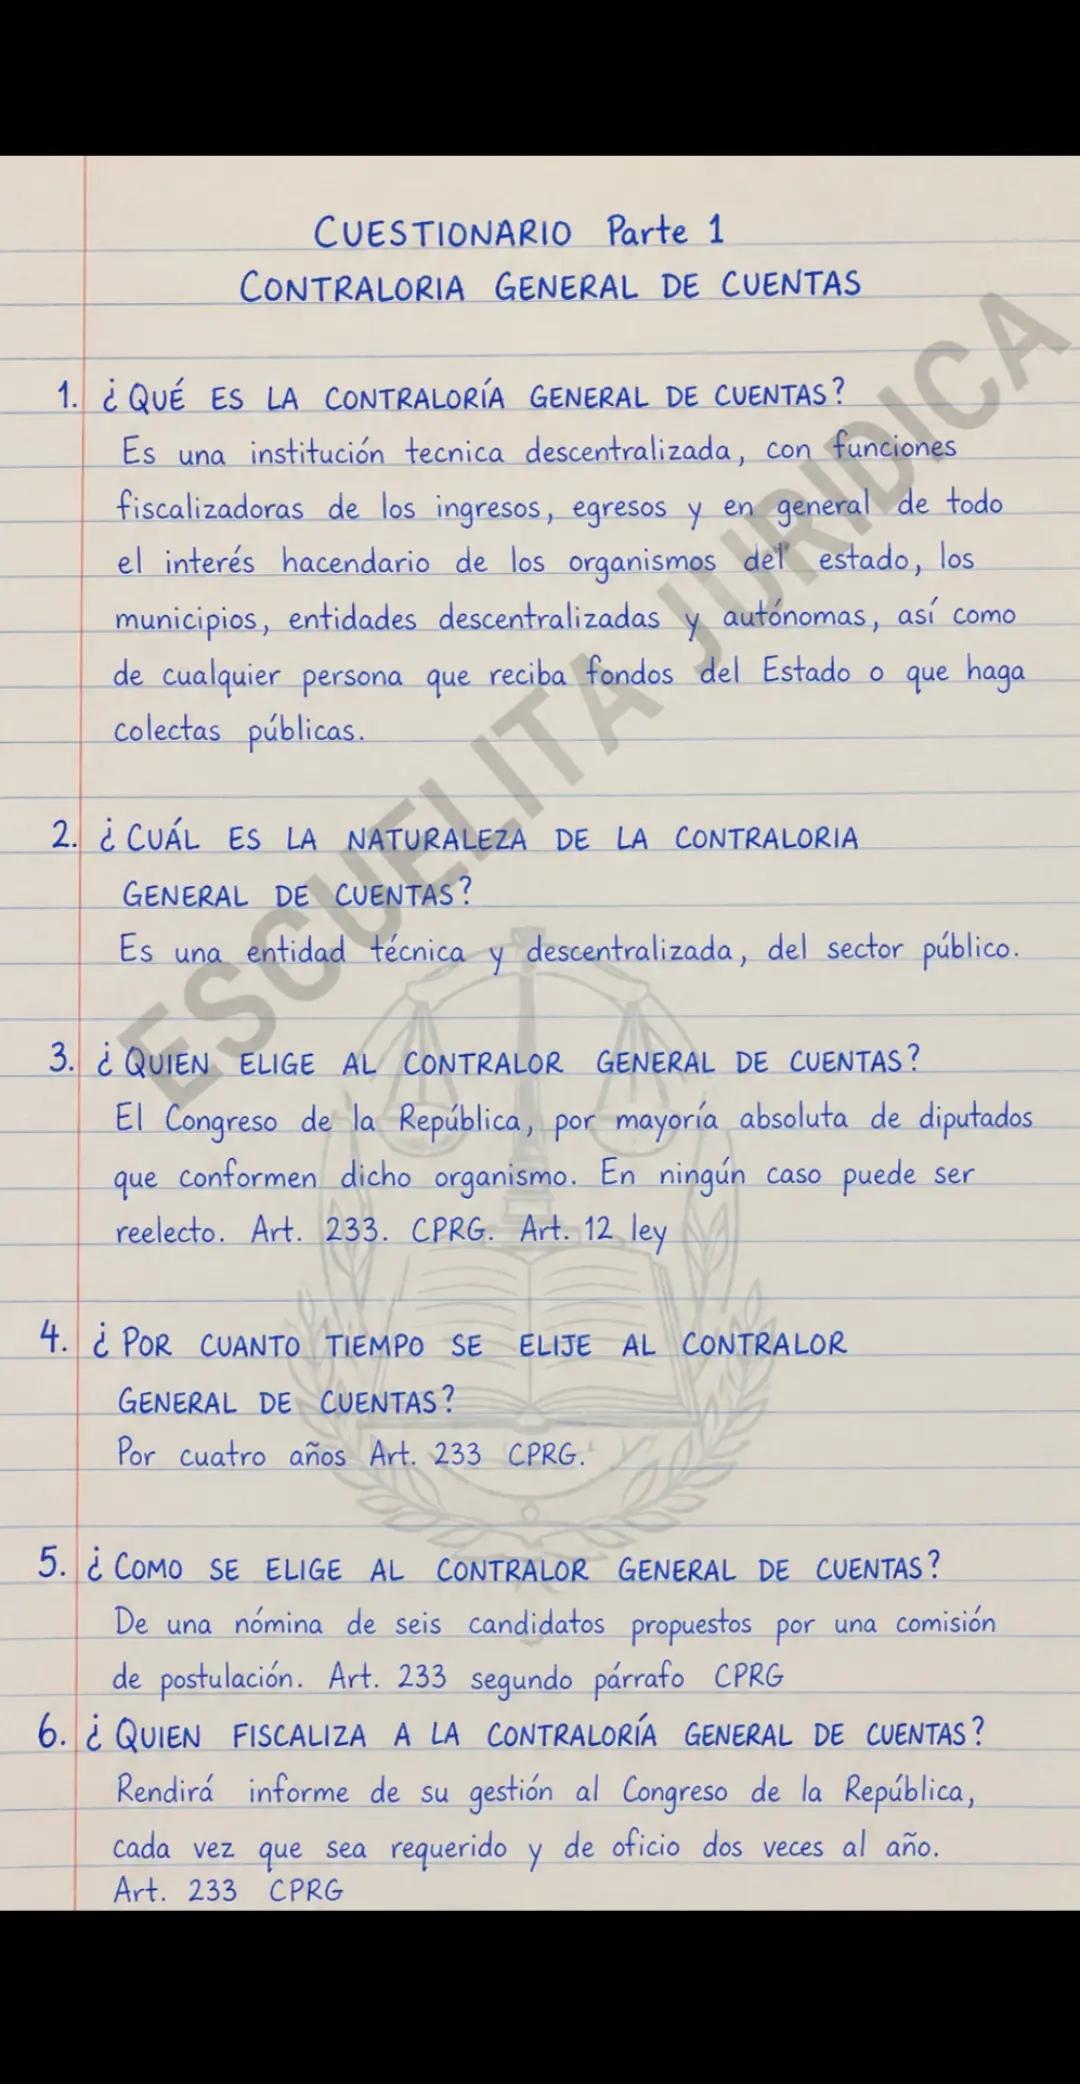 CUESTIONARIO Parte 1
CONTRALORIA GENERAL DE CUENTAS
1. ¿QUÉ ES LA CONTRALORÍA GENERAL DE CUENTAS?
Es una institución tecnica descentralizada, con funciones
fiscalizadoras de los ingresos, egresos y en general de todo
el interés hacendario de los organismos del estado, los
municipios, entidades descentralizadas y autónomas, así como
de cualquier persona que reciba fondos del Estado o que haga
colectas públicas.
2. ¿CUÁL ES LA NATURALEZA DE LA CONTRALORIA
GENERAL DE CUENTAS?
Es una entidad técnica y descentralizada, del sector público.
3. ¿QUIEN ELIGE AL CONTRALOR GENERAL DE CUENTAS?
El Congreso de la República, por mayoría absoluta de diputados
que conformen dicho organismo. En ningún caso puede ser
reelecto. Art. 233. CPRG. Art. 12 ley
4. ¿POR CUANTO TIEMPO SE ELIJE AL CONTRALOR
GENERAL DE CUENTAS?
Por cuatro años Art. 233 CPRG.
5. ¿COMO SE ELIGE AL CONTRALOR GENERAL DE CUENTAS?
De una nómina de seis candidatos propuestos por una comisión
de postulación. Art. 233 segundo párrafo CPRG
6. ¿QUIEN FISCALIZA A LA CONTRALORÍA GENERAL DE CUENTAS?
Rendirá informe de su gestión al Congreso de la República,
cada vez que sea requerido y de oficio dos veces al año.
Art. 233 CPRG
ESCUELITA JURIDICA